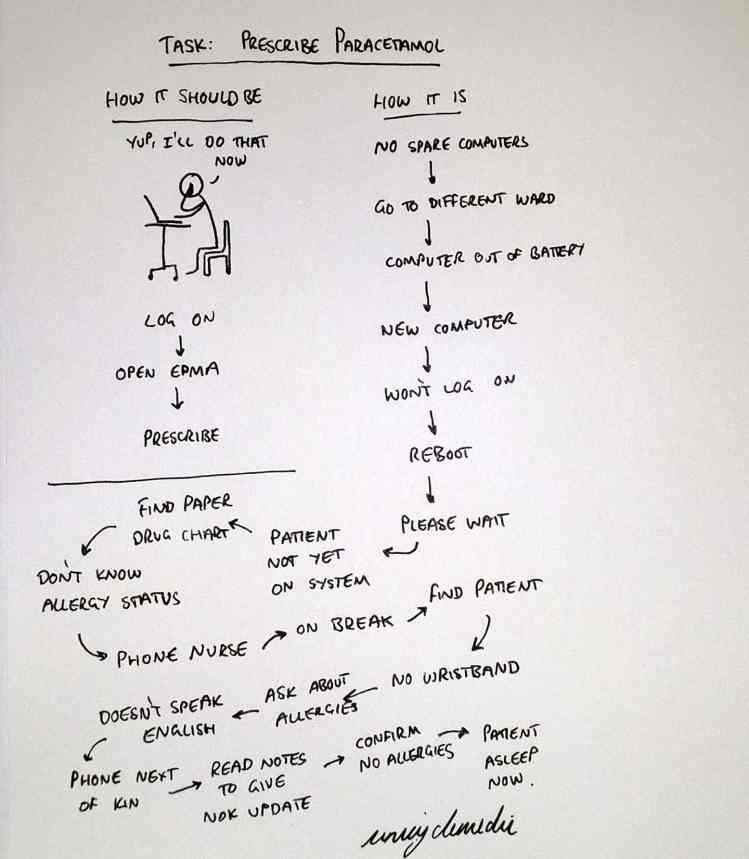 TASK: PRESCRIBE PARACETAMOL
HOW IT SHOULD BE
YUP, I'LL DO THAT
NOW
LOG ON
OPEN EPMA
PRESCRIBE
HOW IT IS
NO SPARE COMPUTERS
GO TO DIFFERENT WARD
COMPUTER OUT OF BATTERY
NEW COMPUTER
WON'T LOG ON
REBOOT
PLEASE WAIT
PATIENT
NOT YET
ON SYSTEM
FIND PAPER
DRUG CHART
DON'T KNOW
ALLERGY STATUS
PHONE NURSE
ON BREAK
FIND PATIENT
NO WRISTBAND
ASK ABOUT
ALLERGIES
DOESN'T SPEAK
ENGLISH
PHONE NEXT
OF KIN
READ NOTES
TO GIVE
NOK UPDATE
CONFIRM
NO ALLERGIES
PATIENT
ASLEEP
NOW.